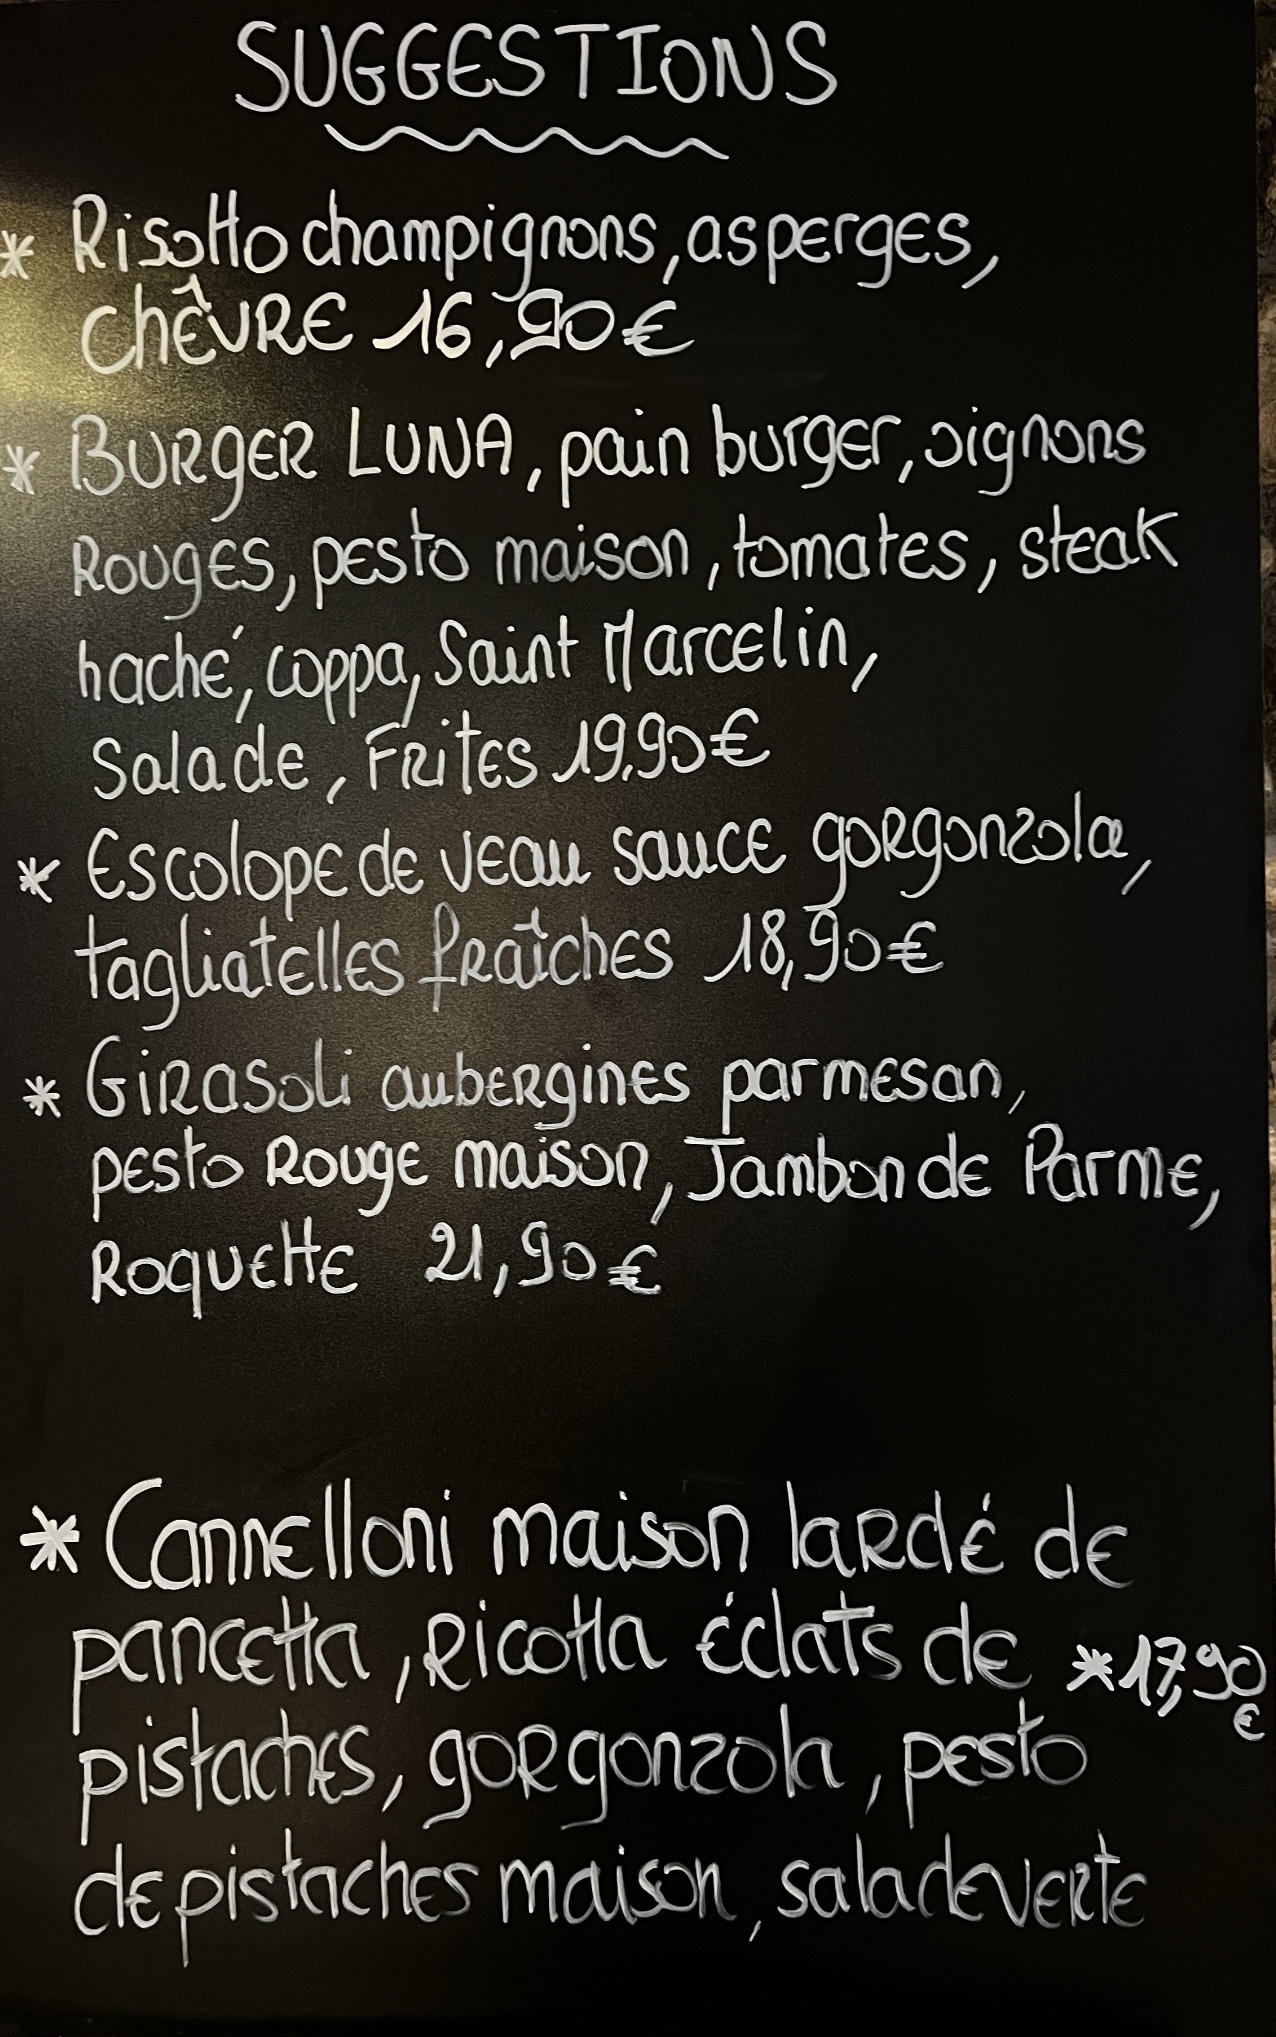 SUGGESTIONS
* Risotto champignons, asperges,
chêvre 16,90€
* BURGER LUNA, pain burger, oignons
Rouges, pesto maison, tomates, steak
haché, coppa, Saint Marcelin,
Salade, Frites 19,90€
* Escolope de veau sauce gorgonzola,
tagliatelles fraîches 18,90€
* Girasoli aubergines parmesan,
pesto Rouge maison, Jambon de Parme,
Roquette 21,90€
* Cannelloni maison lardé de
pancetta, Ricotta éclats de *17,90
€
pistaches, gorgonzola, pesto
de pistaches maison, salade verte